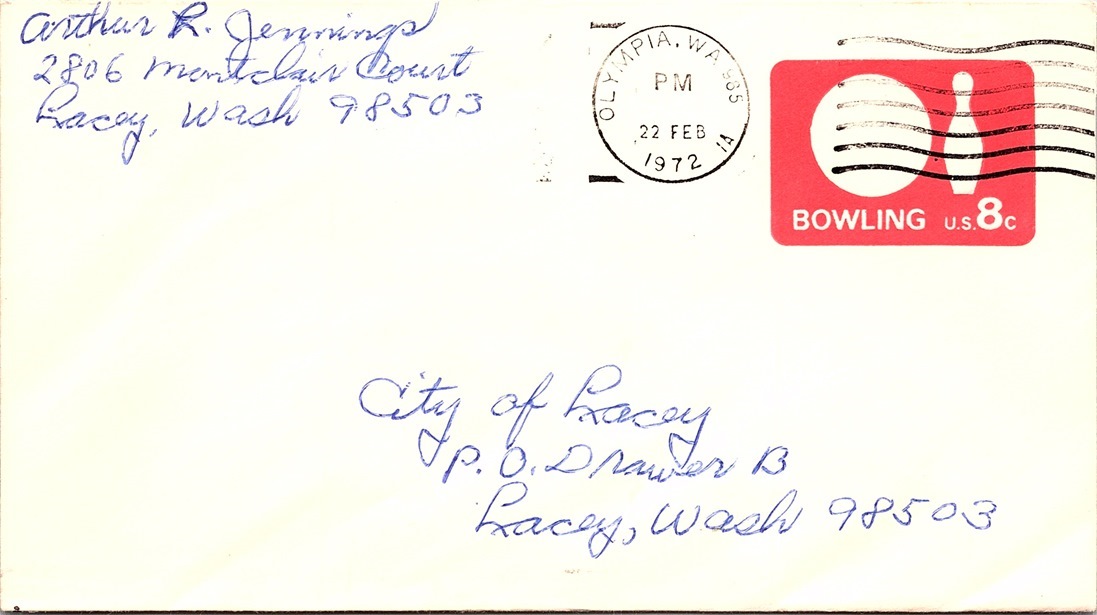 Arthur R. Jennings
2806 Montclair Court
Lacey, Wash 98503
OLYMPIA, WA 985
PM
22 FEB
1972
1A
BOWLING U.S. 8c
City of Lacey
P. O. Drawer B
Lacey, Wash 98503